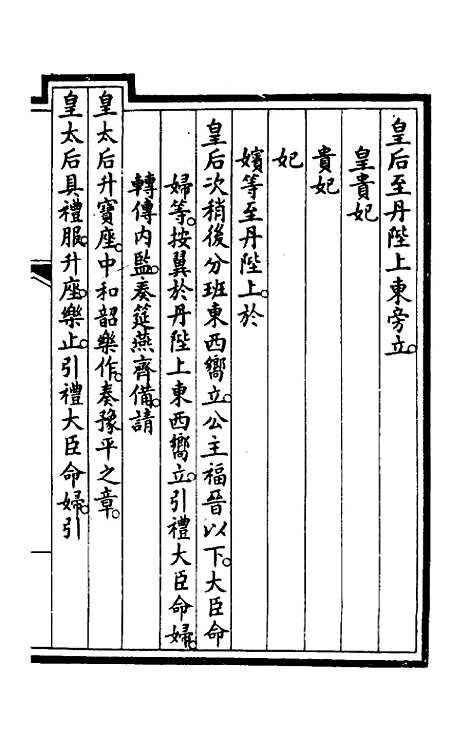 皇后至丹陛上東旁立。
皇貴妃
貴妃
妃
嬪等至丹陛上。於
皇后次稍後分班東西嚮立。公主福晉以下。大臣命
婦等。按翼於丹陛上東西嚮立。引禮大臣命婦。
轉傳內監。奏筵燕齊備。請
皇太后升寶座。中和韶樂作。奏豫平之章。
皇太后具禮服。升座。樂止。引禮大臣命婦。引